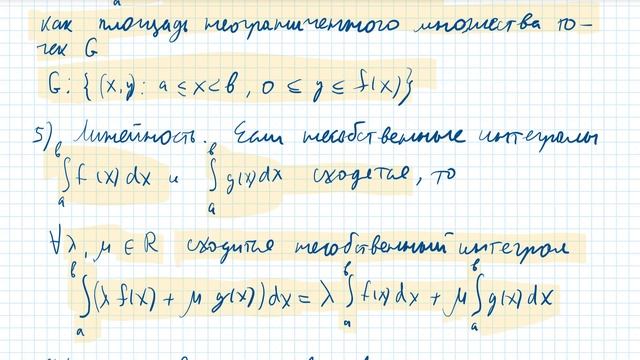 как площадь неограниченного множества то-
чек G
G: {(x,y): a ≤ x < в, 0 ≤ y ≤ f(x)}
5) Линейность. Если несобственные интегралы
∫ₐᵇ f(x)dx и ∫ₐᵇ g(x)dx сходятся, то
∀ λ, μ ∈ R сходится несобственный интеграл
∫ₐᵇ (λ f(x) + μ g(x))dx = λ ∫ₐᵇ f(x)dx + μ ∫ₐᵇ g(x)dx